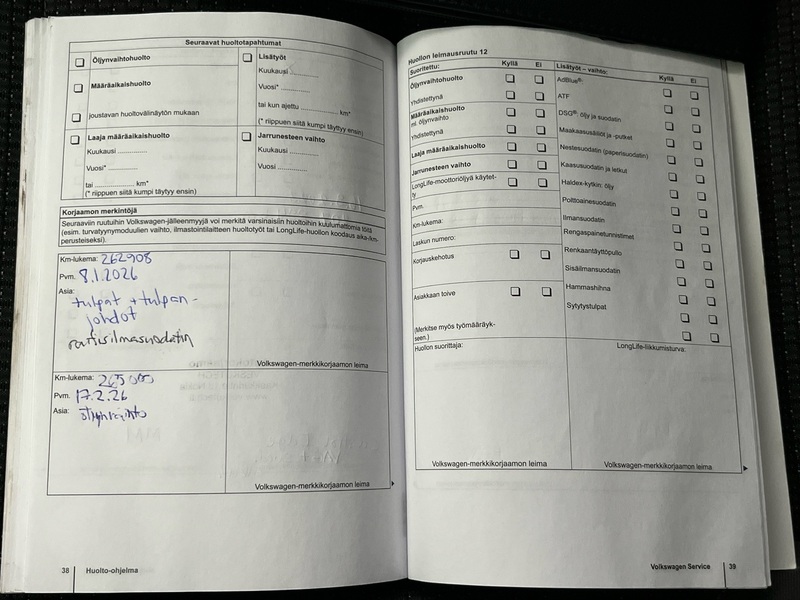 Seuraavat huoltotapahtumat
Öljynvaihtohuolto
Määräaikaishuolto
joustavan huoltovälinäytön mukaan
Laaja määräaikaishuolto
Kuukausi ..............
Vuosi* ..............
tai .............. km*
(* riippuen siitä kumpi täyttyy ensin)
Lisätyöt
Kuukausi ..............
Vuosi* ..............
tai kun ajettu .............. km*
(* riippuen siitä kumpi täyttyy ensin)
Jarrunesteen vaihto
Kuukausi ..............
Vuosi ..............
Korjaamon merkintöjä
Seuraaviin ruutuihin Volkswagen-jälleenmyyjä voi merkitä varsinaisiin huoltoihin kuulumattomia töitä
(esim. turvatyynymoduulien vaihto, ilmastointilaitteen huoltotyöt tai LongLife-huollon koodaus aika-/km-
perusteiseksi).
Km-lukema: 262908
Pvm. 8.1.2026
Asia:
tulpat + tulpan-
johdot
raitisilmasuodatin
Volkswagen-merkkikorjaamon leima
Km-lukema: 265000
Pvm. 17.2.26
Asia: öljynvaihto
Volkswagen-merkkikorjaamon leima
38 Huolto-ohjelma
Huollon leimausruutu 12
Suoritettu: Kyllä Ei
Öljynvaihtohuolto
Yhdistettynä
Määräaikaishuolto
ml. öljynvaihto
Yhdistettynä
Laaja määräaikaishuolto
Jarrunesteen vaihto
LongLife-moottoriöljyä käytet-
ty
Pvm.
Km-lukema:
Laskun numero:
Korjauskehotus
Asiakkaan toive
(Merkitse myös työmääräyk-
seen.)
Huollon suorittaja:
Volkswagen-merkkikorjaamon leima
Lisätyöt – vaihto: Kyllä Ei
AdBlue®:
ATF
DSG®: öljy ja suodatin
Maakaasusäiliöt ja -putket
Nestesuodatin (paperisuodatin)
Kaasusuodatin ja letkut
Haldex-kytkin: öljy
Polttoainesuodatin
Ilmansuodatin
Rengaspainetunnistimet
Renkaantäyttöpullo
Sisäilmansuodatin
Hammashihna
Sytytystulpat
LongLife-liikkumisturva:
Volkswagen-merkkikorjaamon leima
Volkswagen Service 39